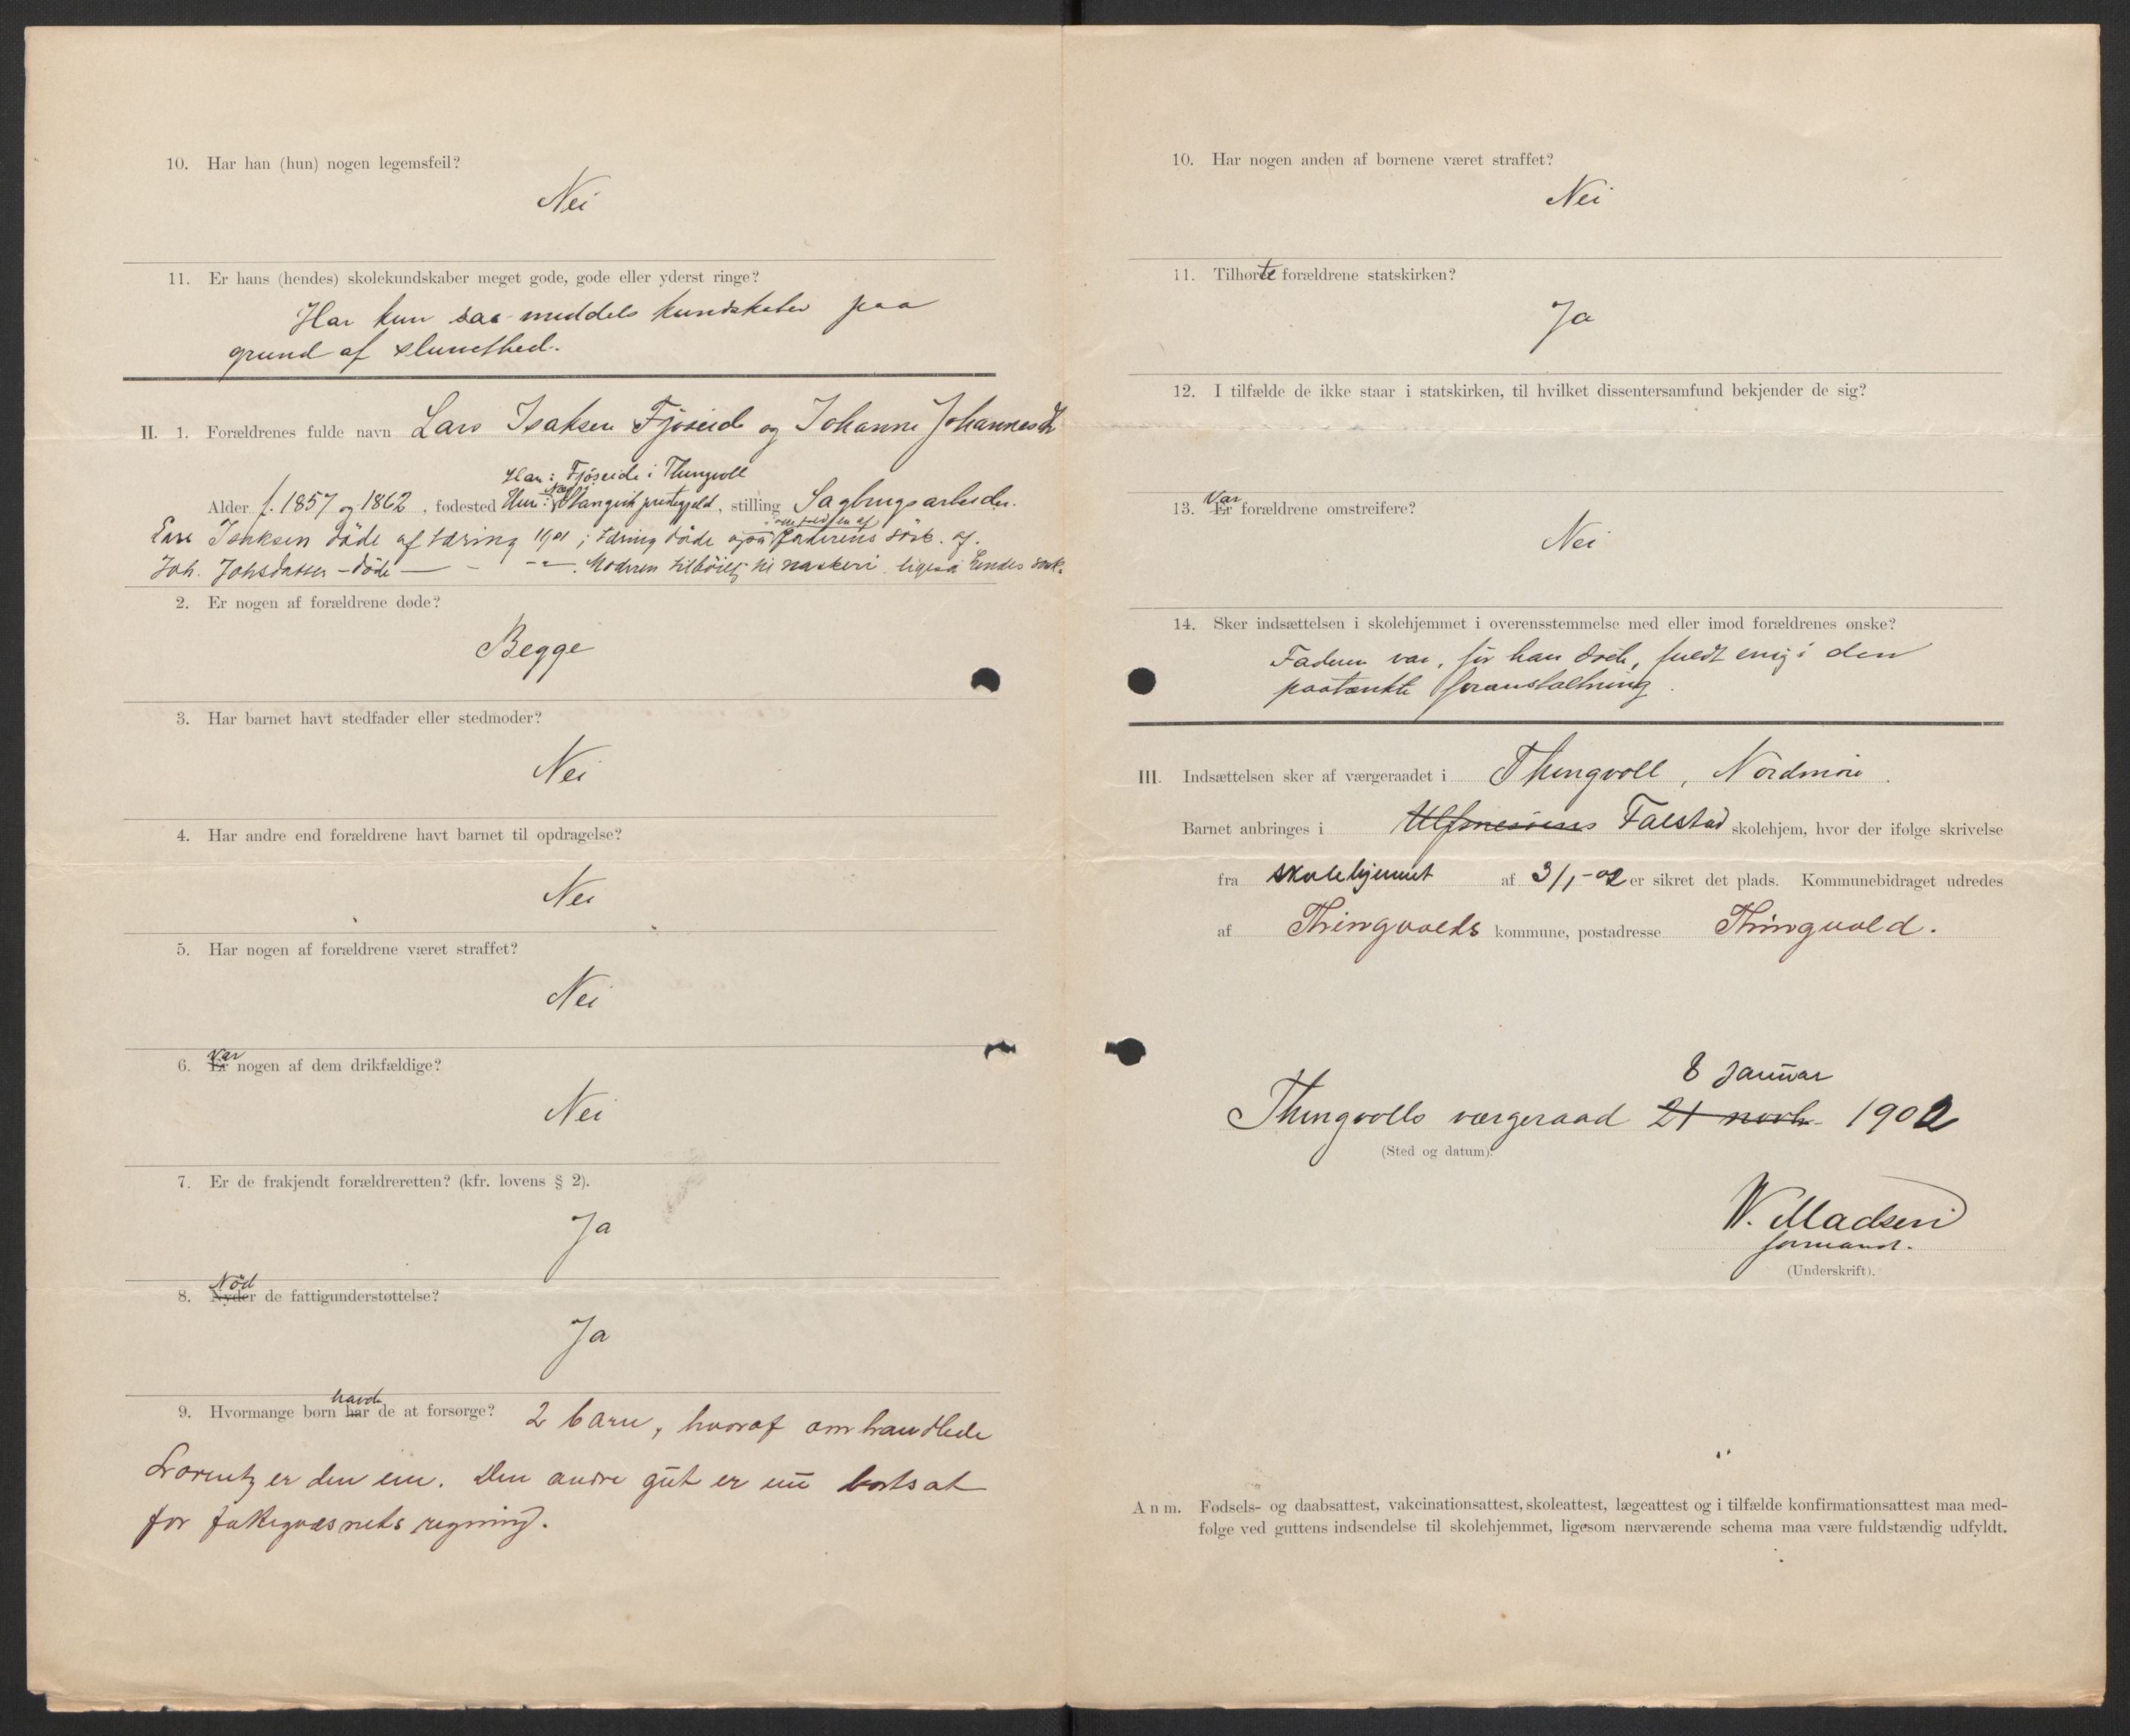 10. Har han (hun) nogen legemsfeil?
Nei
11. Er hans (hendes) skolekundskaber meget gode, gode eller yderst ringe?
Har kun saa middels kundskaber paa
grund af sluvethed.
II. 1. Forældrenes fulde navn Lars Isaksen Fjøseide og Johanne Johannesdtr
Han: Fjøseide i Thingvoll
Alder f. 1857 og 1862, fødested Hun: Stangvik prestegjeld, stilling Sagbrugsarbeider.
Lars Isaksen døde af tæring 1901; tæring døde
Joh. Johsdatter – døde — - -"- . Moderen tilbøielig til naskeri ligeså hendes
2. Er nogen af forældrene døde?
Begge
3. Har barnet havt stedfader eller stedmoder?
Nei
4. Har andre end forældrene havt barnet til opdragelse?
Nei
5. Har nogen af forældrene været straffet?
Nei
Var
6. Er nogen af dem drikfældige?
Nei
7. Er de frakjendt forældreretten? (kfr. lovens § 2).
Ja
Nød
8. Nyder de fattigunderstøttelse?
Ja
havde
9. Hvormange børn har de at forsørge? 2 barn, hvoraf omhandlede
Lorentz er den ene. Den andre gut er nu bortsat
for fattigvæsnets regning.
10. Har nogen anden af børnene været straffet?
Nei
11. Tilhørte forældrene statskirken?
Ja
12. I tilfælde de ikke staar i statskirken, til hvilket dissentersamfund bekjender de sig?
Var
13. Er forældrene omstreifere?
Nei
14. Sker indsættelsen i skolehjemmet i overensstemmelse med eller imod forældrenes ønske?
Faderen var, før han døde, fuldt enig i den
paatænkte foranstaltning.
III. Indsættelsen sker af værgeraadet i Thingvoll, Nordmøre.
Barnet anbringes i Ulfsnesøens Falstad skolehjem, hvor der ifølge skrivelse
fra skolehjemmet af 3/1-02 er sikret det plads. Kommunebidraget udredes
af Thingvolds kommune, postadresse Thingvold.
8 Januar
Thingvolls værgeraad 21 novb. 1902
(Sted og datum).
W. Madsen
formand.
(Underskrift).
Anm. Fødsels- og daabsattest, vakcinationsattest, skoleattest, lægeattest og i tilfælde konfirmationsattest maa med-
følge ved guttens indsendelse til skolehjemmet, ligesom nærværende schema maa være fuldstændig udfyldt.